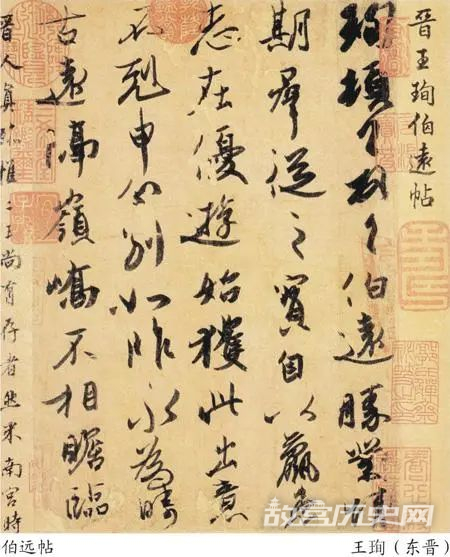 晋王珣伯遠帖
珣頓首頓首伯遠勝業情
期群從之寶自以羸患
志在優遊始獲此出意
不剋申分别如昨永為疇
古遠隔嶺嶠不相瞻臨
晋人真跡惟二王尚有存者然米南宮時
故宫历史网
伯远帖
王珣（东晋）